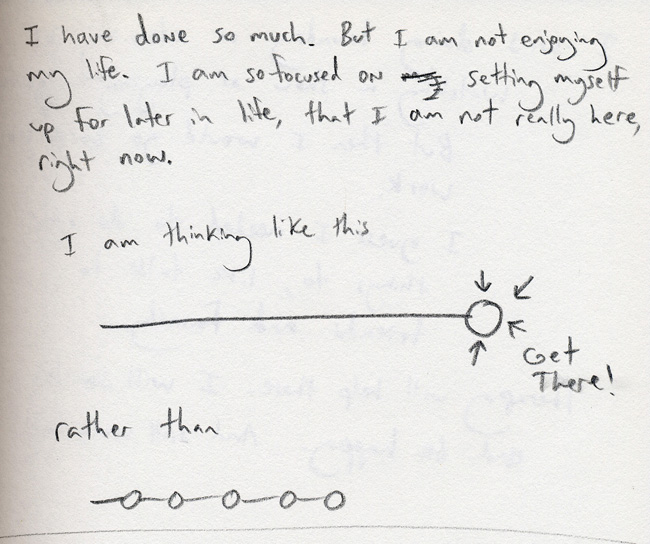 I have done so much. But I am not enjoying
my life. I am so focused on setting myself
up for later in life, that I am not really here,
right now.
I am thinking like this
Get
There!
rather than